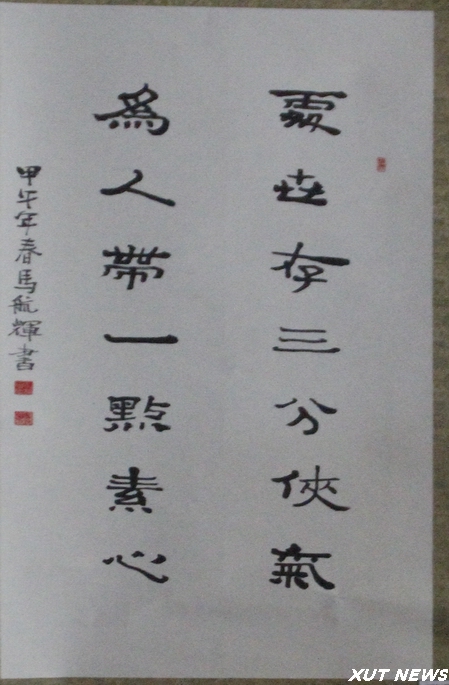 處世存三分俠氣
為人帶一點素心
甲午年春馬航輝書
XUT NEWS